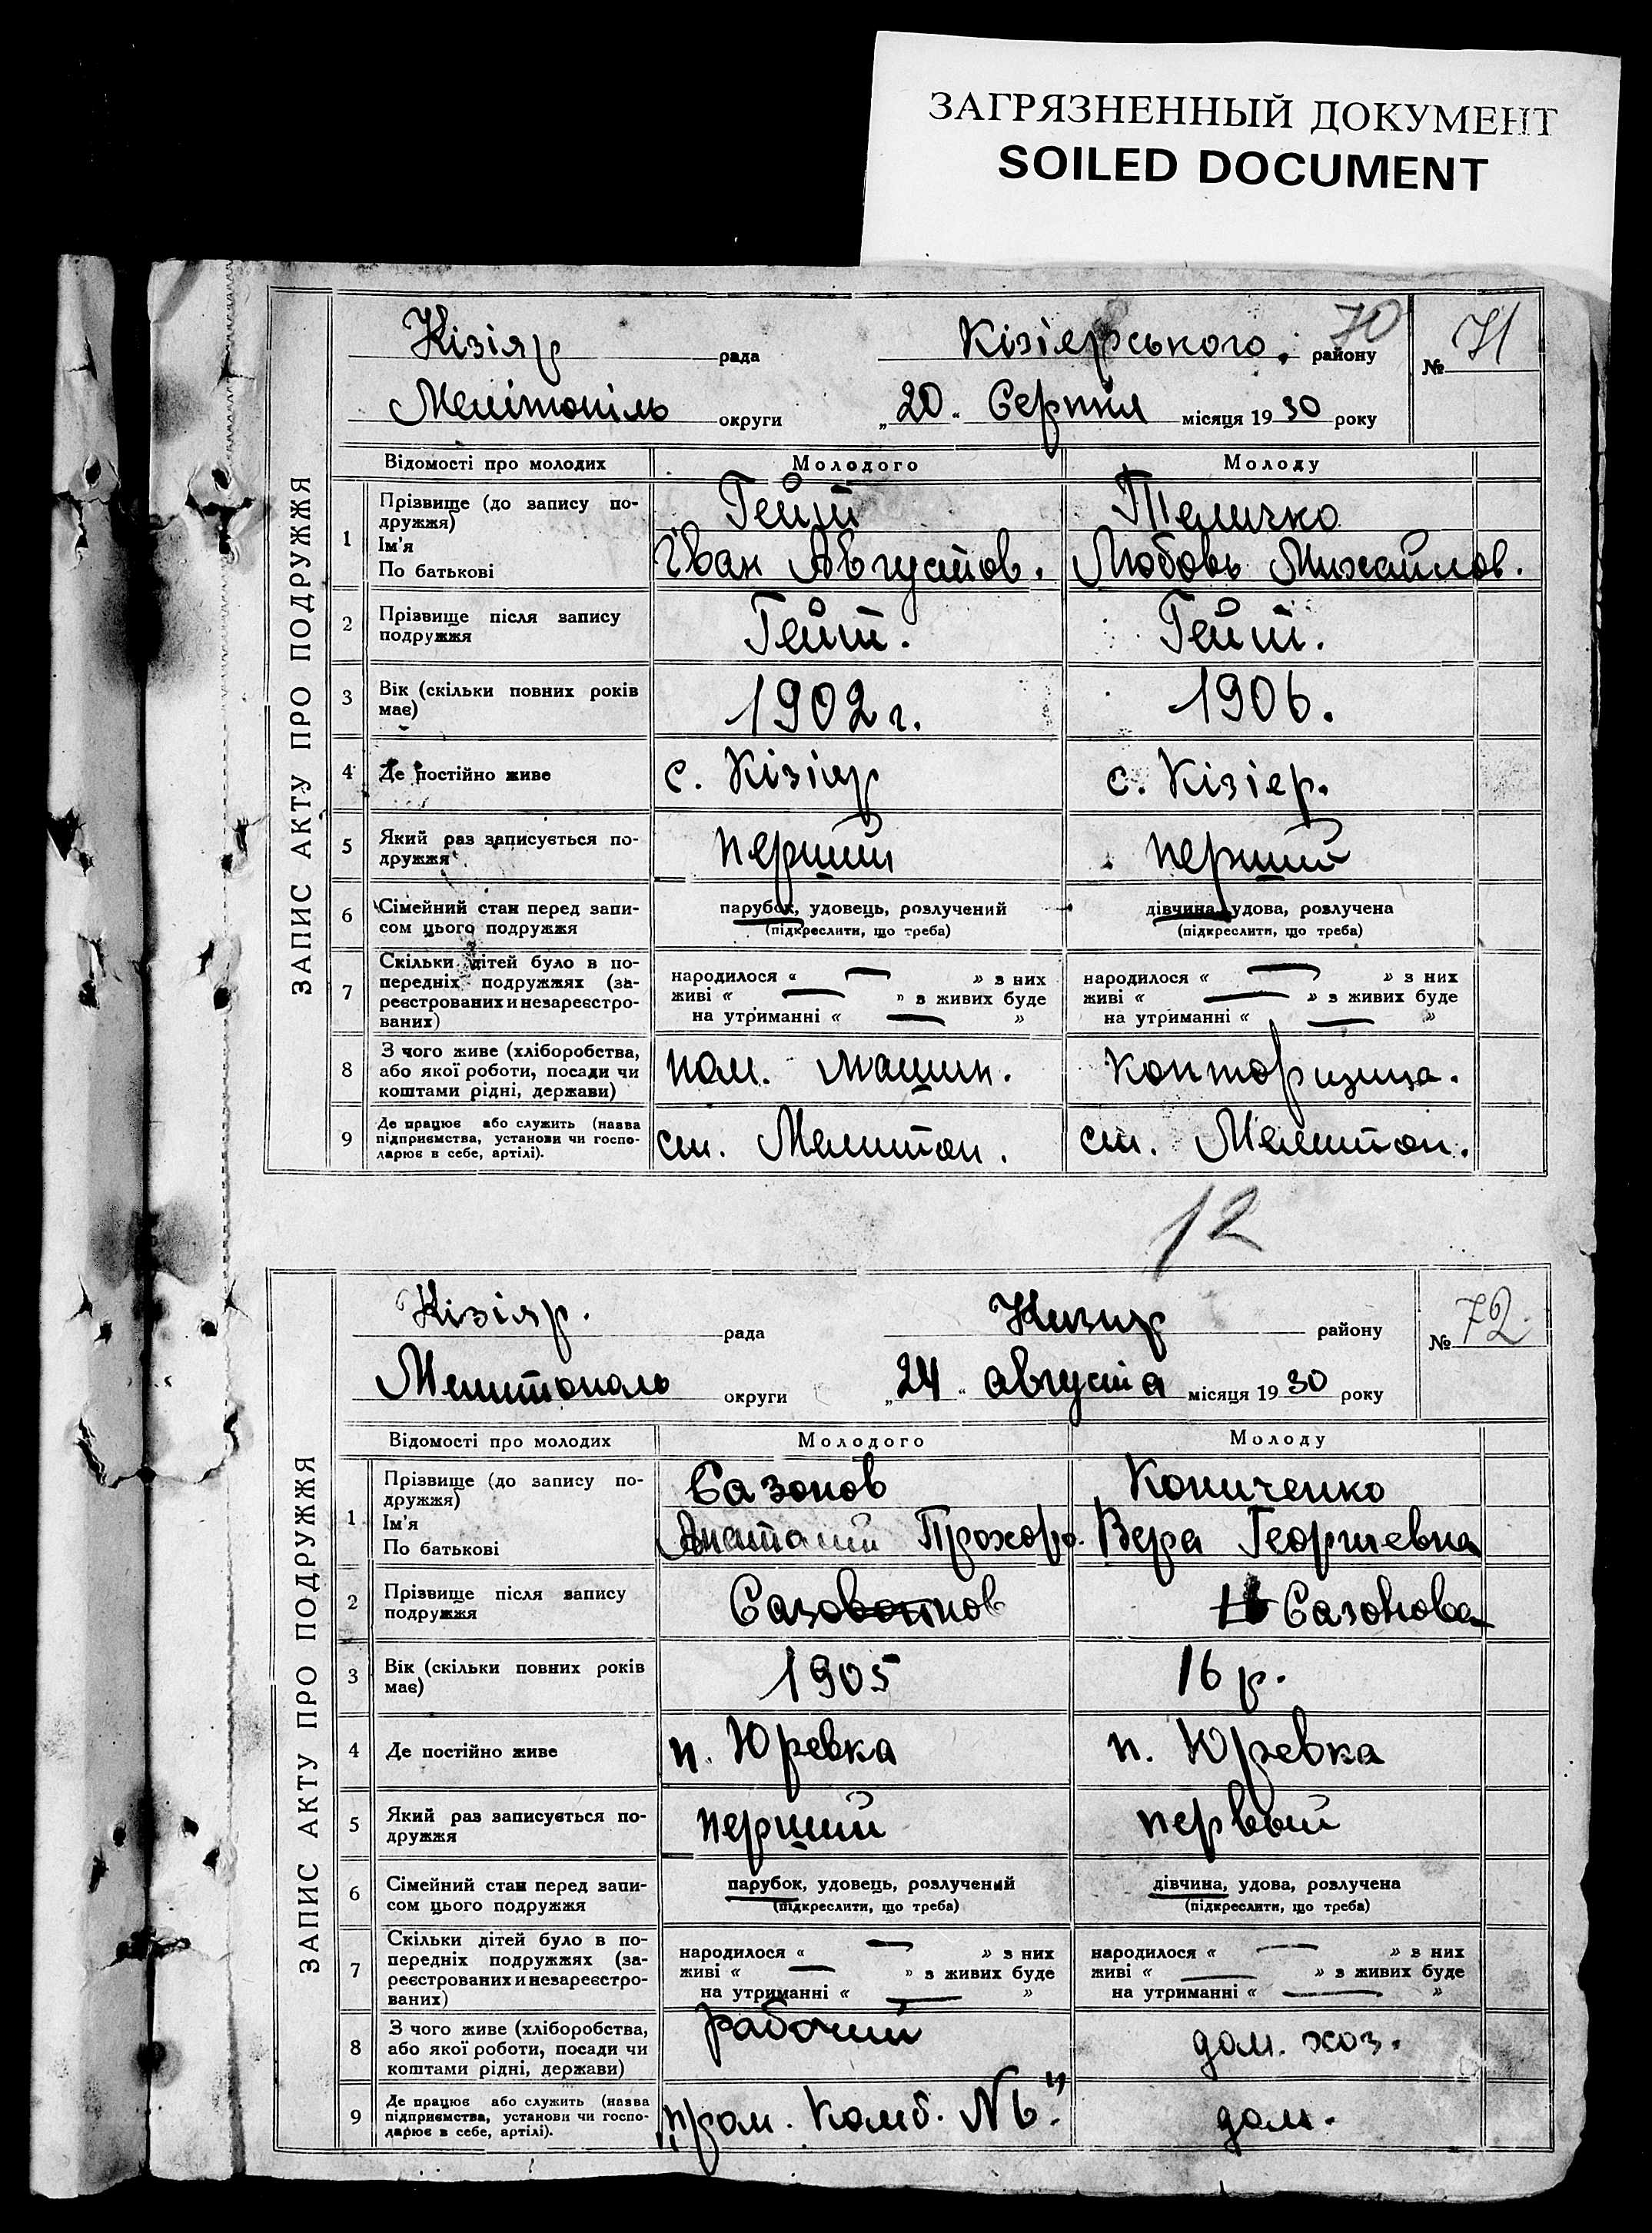 ЗАГРЯЗНЕННЫЙ ДОКУМЕНТ
SOILED DOCUMENT
ЗАПИС АКТУ ПРО ПОДРУЖЖЯ
Кізіяр рада Кізіерського району 70 № 71
Мелітопіль округи „20“ Серпня місяця 1930 року
Відомості про молодих Молодого Молоду
1 Прізвище (до запису по- Гейт Теличко
дружжя)
Ім'я Іван Августов. Любовь Михайлов.
По батькові
2 Прізвище після запису Гейт. Гейт.
подружжя
3 Вік (скільки повних років 1902 г. 1906.
має)
4 Де постійно живе с. Кізіяр с. Кізіер.
5 Який раз записується по- перший перший
дружжя
6 Сімейний стан перед запи- парубок, удовець, розлучений дівчина, удова, розлучена
сом цього подружжя (підкреслити, що треба) (підкреслити, що треба)
7 Скільки дітей було в по-
передніх подружжях (за- народилося « — » з них народилося « — » з них
реєстрованих и незареєстро- живі « — » з живих буде живі « — » з живих буде
ваних) на утриманні « — » на утриманні « — »
8 З чого живе (хліборобства,
або якої роботи, посади чи пом. машин. конторщица.
коштами рідні, держави)
9 Де працює або служить (назва
підприємства, установи чи госпо- ст. Мелитоп. ст. Мелитоп.
дарює в себе, артілі).
12
ЗАПИС АКТУ ПРО ПОДРУЖЖЯ
Кізіяр. рада Кизияр району № 72
Мелитополь округи „24“ августа місяця 1930 року
Відомості про молодих Молодого Молоду
1 Прізвище (до запису по- Сазонов Кониченко
дружжя)
Ім'я Анатолий Прохоро. Вера Георгиевна
По батькові
2 Прізвище після запису Сазов нов Сазонова
подружжя
3 Вік (скільки повних років 1905 16 р.
має)
4 Де постійно живе п. Юревка п. Юревка
5 Який раз записується по- перший первый
дружжя
6 Сімейний стан перед запи- парубок, удовець, розлучений дівчина, удова, розлучена
сом цього подружжя (підкреслити, що треба) (підкреслити, що треба)
7 Скільки дітей було в по-
передніх подружжях (за- народилося « — » з них народилося « — » з них
реєстрованих и незареєстро- живі « — » з живих буде живі « — » з живих буде
ваних) на утриманні « — » на утриманні « — »
8 З чого живе (хліборобства, рабочий
або якої роботи, посади чи дом. хоз.
коштами рідні, держави)
9 Де працює або служить (назва
підприємства, установи чи госпо- „Пром. Комб. № 6.“ дом.
дарює в себе, артілі).